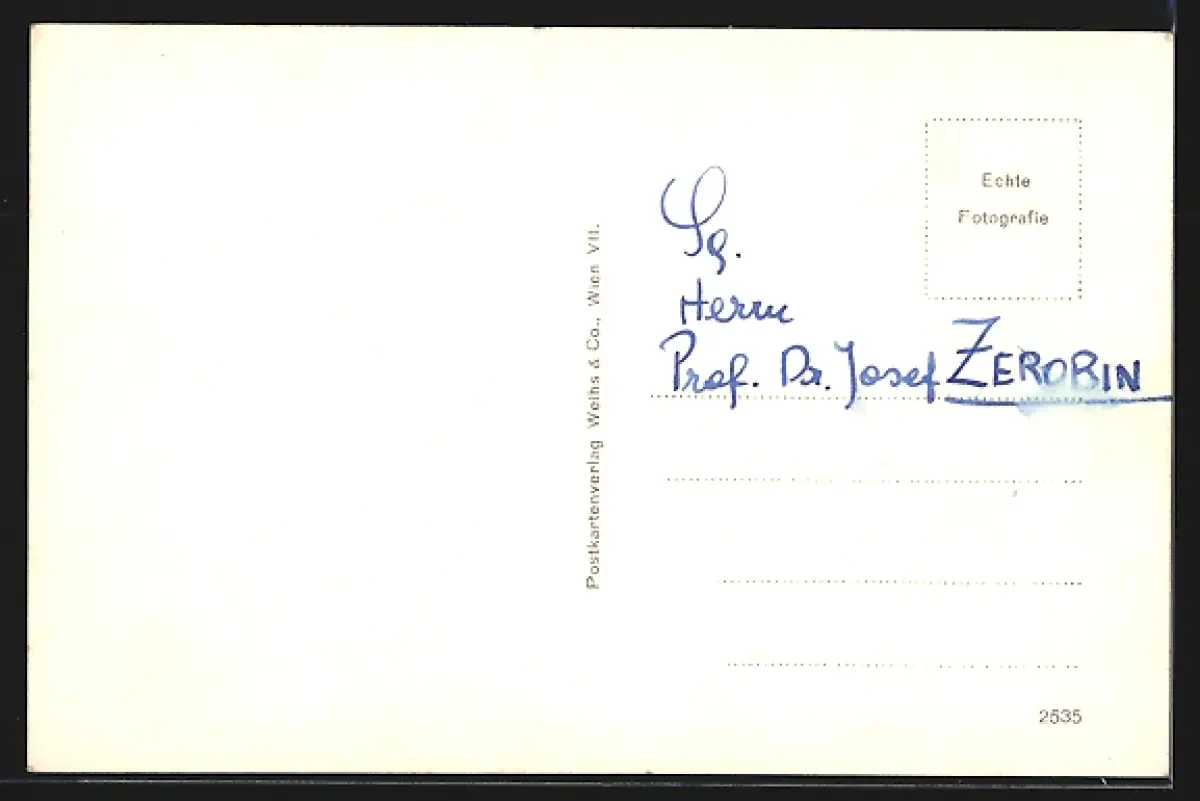 Echte
Fotografie
Sg.
Herrn
Prof. Dr. Josef ZEROBIN
Postkartenverlag Weihs & Co., Wien VII.
2535